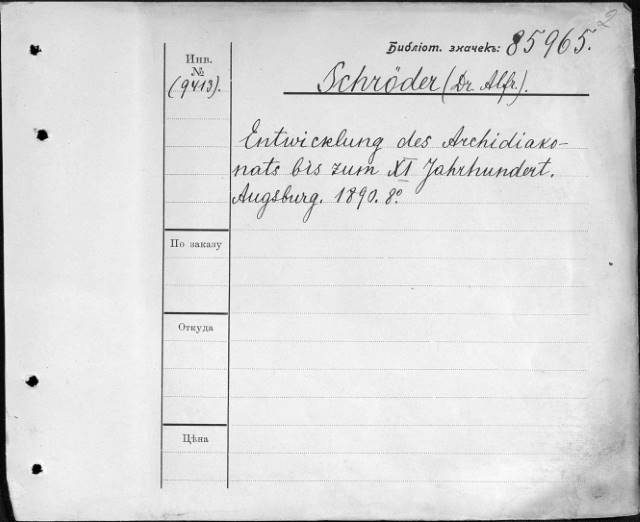 Библіот. значекъ: 85965.
Инв.
№
(9413).
Schröder (Dr. Alfr.).
Entwicklung des Archidiako-
nats bis zum XI Jahrhundert.
Augsburg. 1890. 8º.
По заказу
Откуда
Цѣна